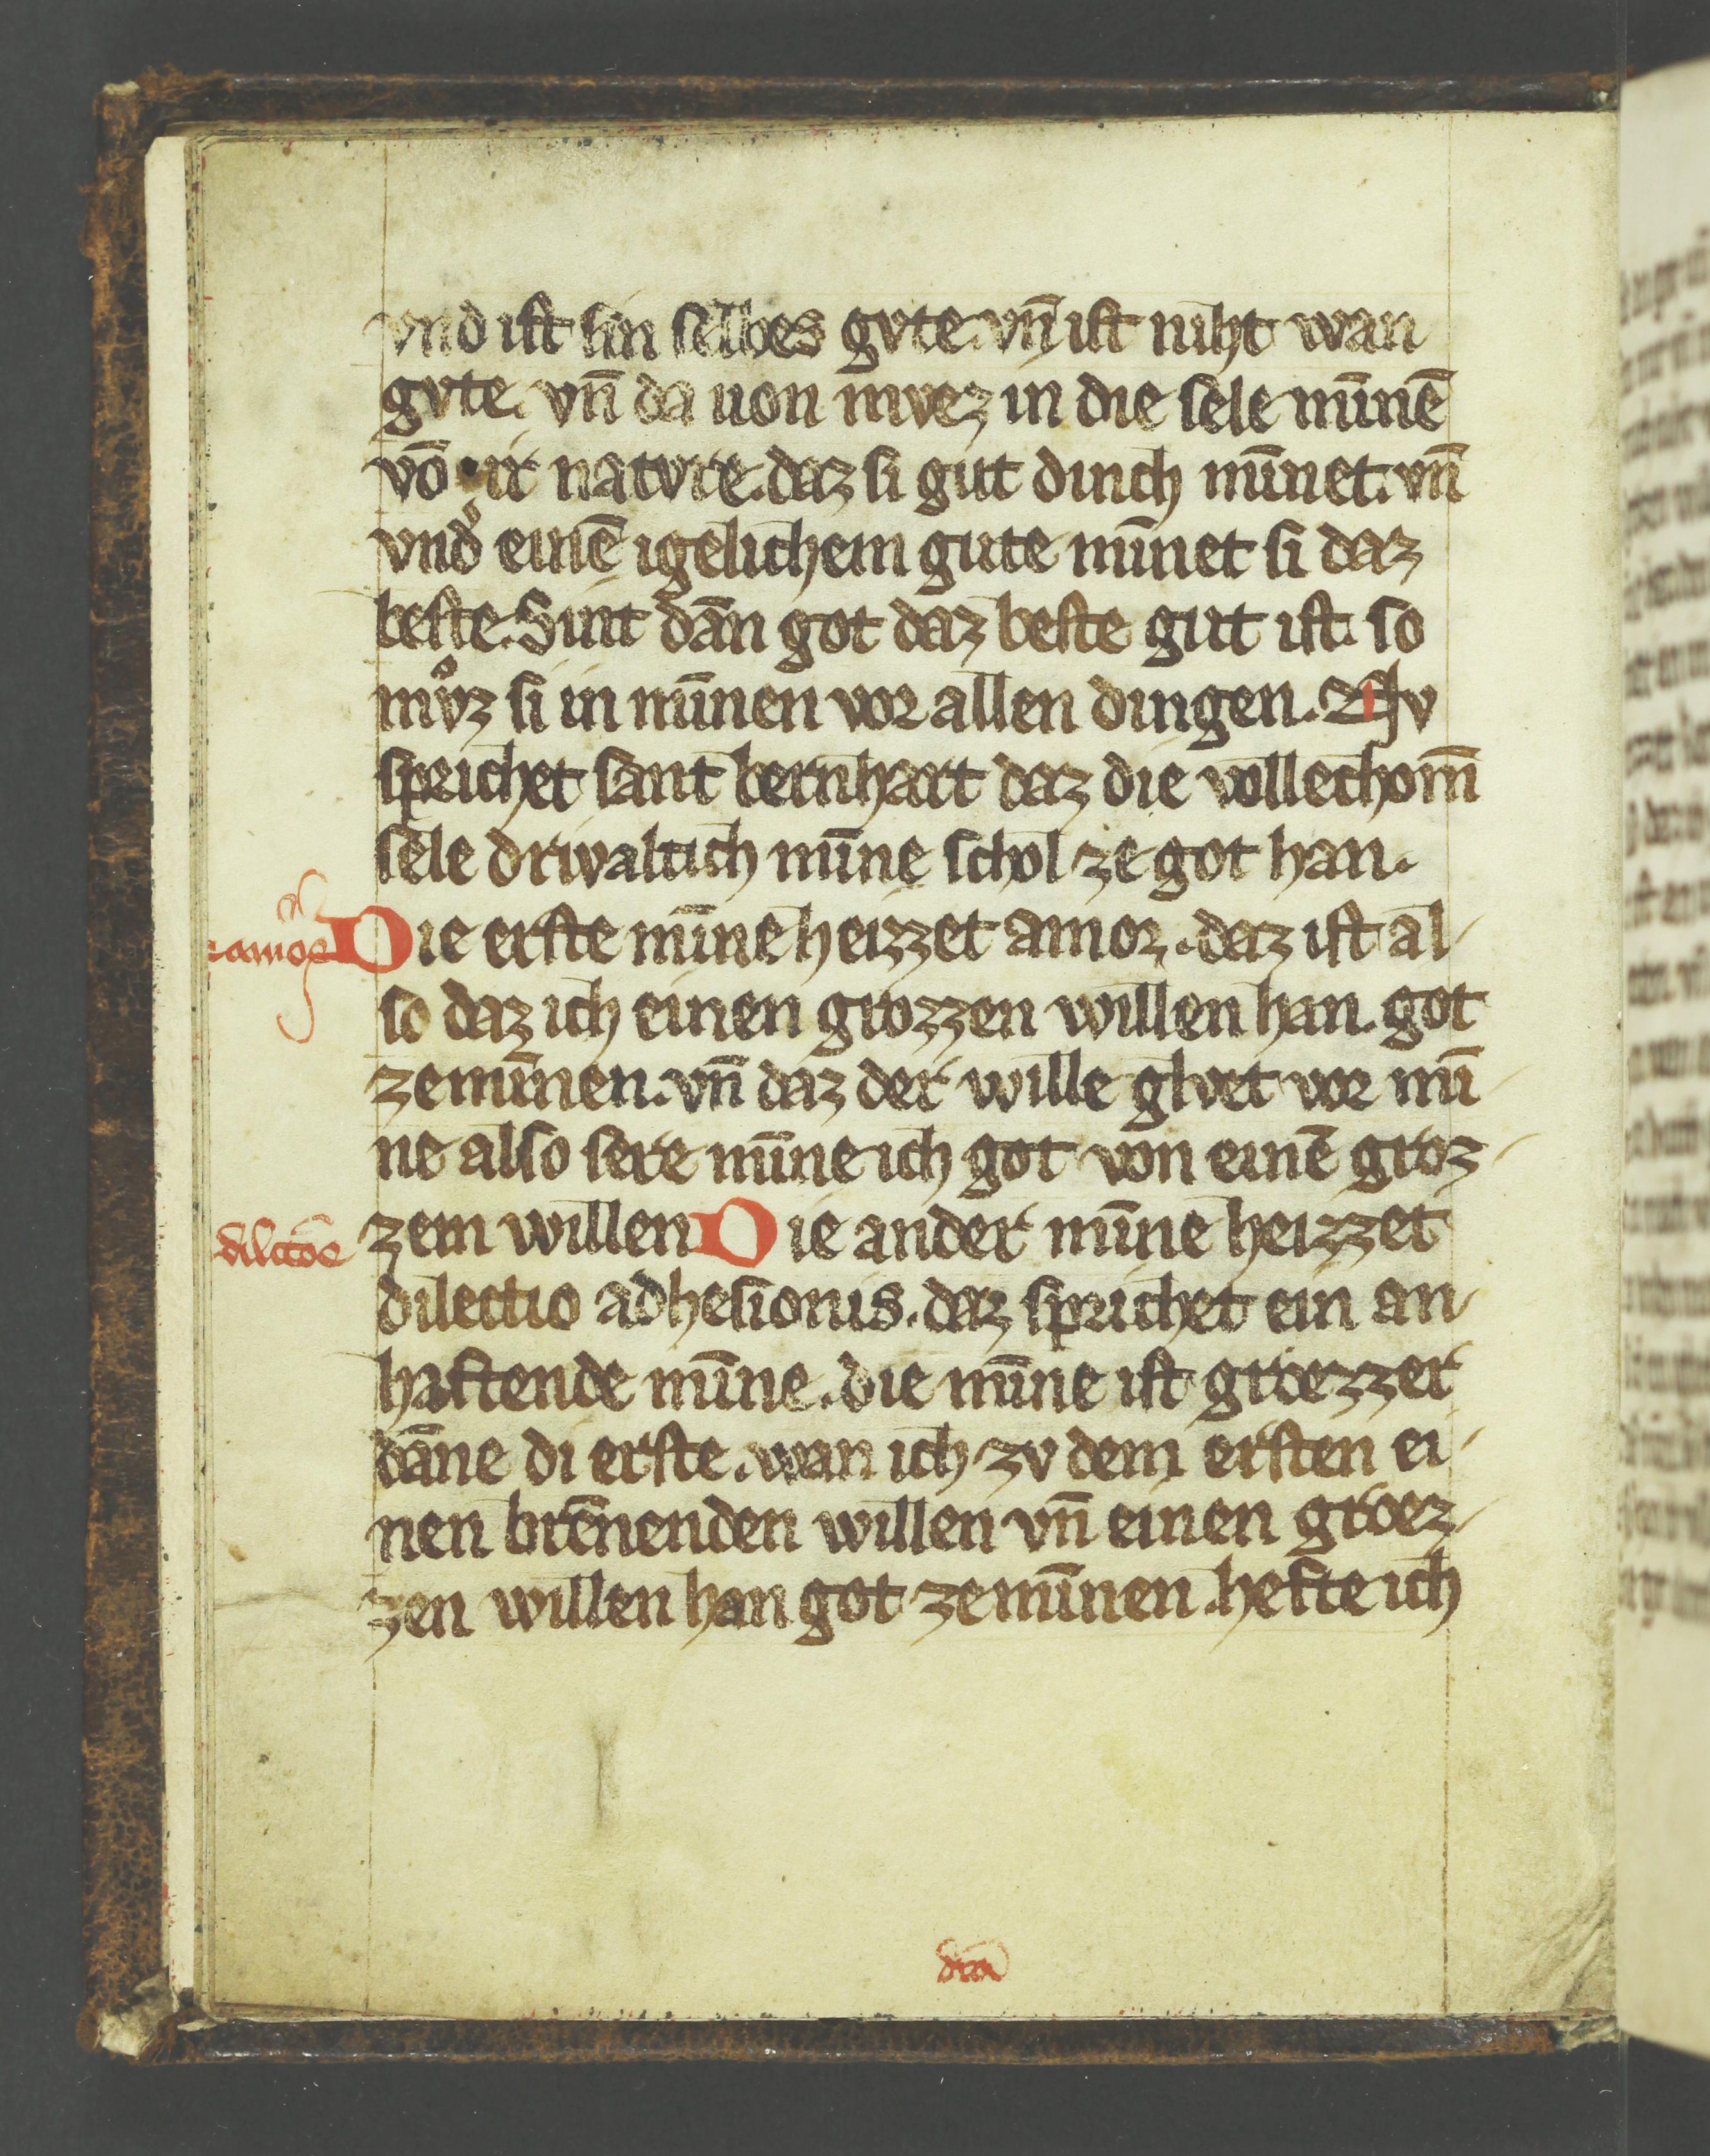 vnd ist sin selbes gvte. vn̄ ist niht wan
gvte. vn̄ da uon mvez in die sele mīnē
vō ir natvre. daz si gut dinch mīnet. vn̄
vnd͛ einē igelichem gute mīnet si daz
beste. Sint dān got daz beste gut ist. so
mv̊z si in mīnen vor allen dingen. Nv
sprichet sant bernhart daz die vollechom̄
sele drivaltich mīne schol ze got han.
amor Die erste mīne heizzet amor. daz ist al-
so daz ich einen grozzen willen han. got
zemīnen. vn̄ daz der wille glvet vor mī-
ne also sere mīne ich got von einē groz-
dilcōe zem willen Die ander mīne heizzet
dilectio adhesionis. daz sprichet ein an-
haftende mīne. die mīne ist groezzer
dāne di erste. wan ich zv dem ersten ei-
nen brēnenden willen vn̄ einen groez-
zen willen han got zemīnen. hefte ich